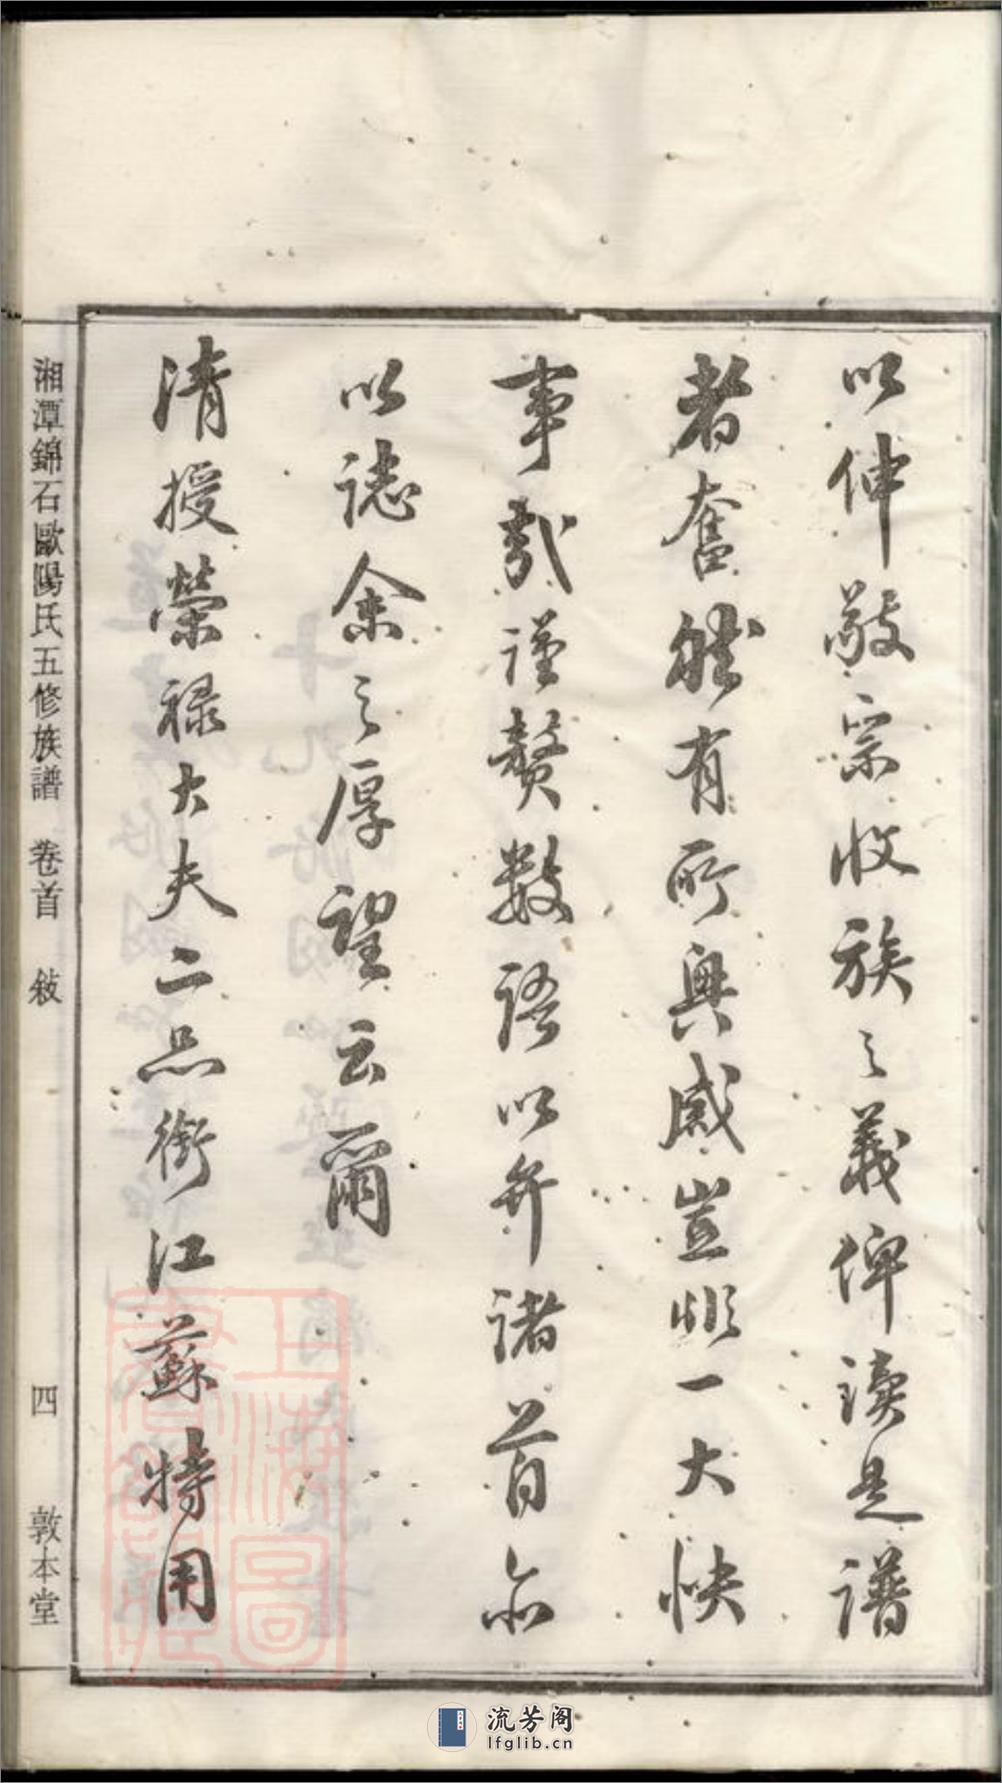 以伸敬宗收族之義俾讀是譜
者奮然有所興感豈非一大快
事哉謹贅數語以弁諸首亦
以誌余之厚望云爾
清授榮禄大夫二品銜江蘇特用
湘潭錦石歐陽氏五修族譜 卷首 敍 四 敦本堂
上海圖書館藏
流芳阁
lfglib.cn